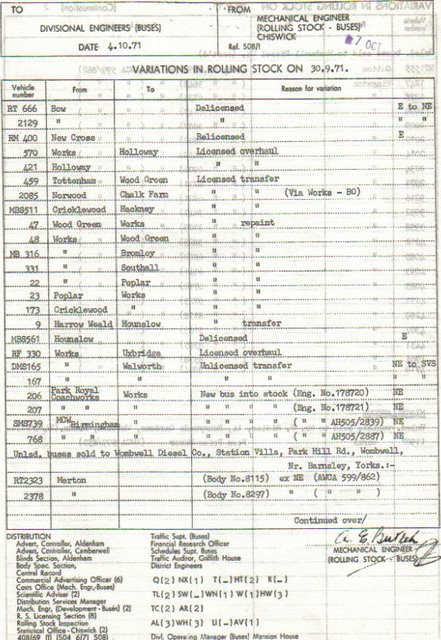 TO
FROM
DIVISIONAL ENGINEERS (BUSES)
MECHANICAL ENGINEER
(ROLLING STOCK - BUSES)
CHISWICK
DATE 4.10.71
Ref. 508/1
7 OCT
VARIATIONS IN ROLLING STOCK ON 30.9.71.
Vehicle number From To Reason for variation
RT 666 Bow Delicensed E to NE
2129 " " " "
RM 400 New Cross Relicensed E
570 Works Holloway Licensed overhaul
421 Holloway " "
459 Tottenham Wood Green Licensed transfer
2085 Norwood Chalk Farm " " (Via Works - BO)
MBS511 Cricklewood Hackney " "
47 Wood Green Works " repaint
48 Works Wood Green " "
MB 316 " Bromley " "
331 " Southall " "
22 " Poplar " "
23 Poplar Works " "
173 Cricklewood " " "
9 Harrow Weald Hounslow " transfer
MBS561 Hounslow Delicensed E
RF 330 Works Uxbridge Licensed overhaul
DMS165 " Walworth Unlicensed transfer NE to SVS
167 " " " " " "
206 Park Royal Coachworks Works New bus into stock (Eng. No.178720) NE
207 " " " " " " " (Eng. No.178721) NE
SMS739 MCW Birmingham " " " " " ( " " AH505/2839) NE
768 " " " " " " ( " " AH505/2887) NE
Unlsd. buses sold to Wombwell Diesel Co., Station Villa, Park Hill Rd., Wombwell,
Nr. Barnsley, Yorks.:-
RT2323 Merton (Body No.8115) ex NE (AWCA 599/862)
2378 " (Body No.8297) " ( " " )
Continued over/
DISTRIBUTION
Advert, Controller, Aldenham
Advert, Controller, Camberwell
Blinds Section, Aldenham
Body Spec. Section,
Central Record
Commercial Advertising Officer (6)
Costs Office (Mech. Engr.-Buses)
Scientific Adviser (2)
Distribution Services Manager
Mech. Engr. (Development - Buses) (2)
R. S. Licensing Section (8)
Rolling Stock Inspection
Statistical Office - Chiswick (2)
Traffic Supt. (Buses)
Financial Research Officer
Schedules Supt. Buses
Traffic Auditor, Griffith House
District Engineers
Q(2) NX(1) T(-)HT(2) R(-)
TL(2)SW(-)WN(1) W(1)HW(3)
TC(2) AR(2)
AL(3)WH(3) U(-)AV(1)
Divl. Operating Manager (Buses) Mansion House
MECHANICAL ENGINEER
(ROLLING STOCK - BUSES)